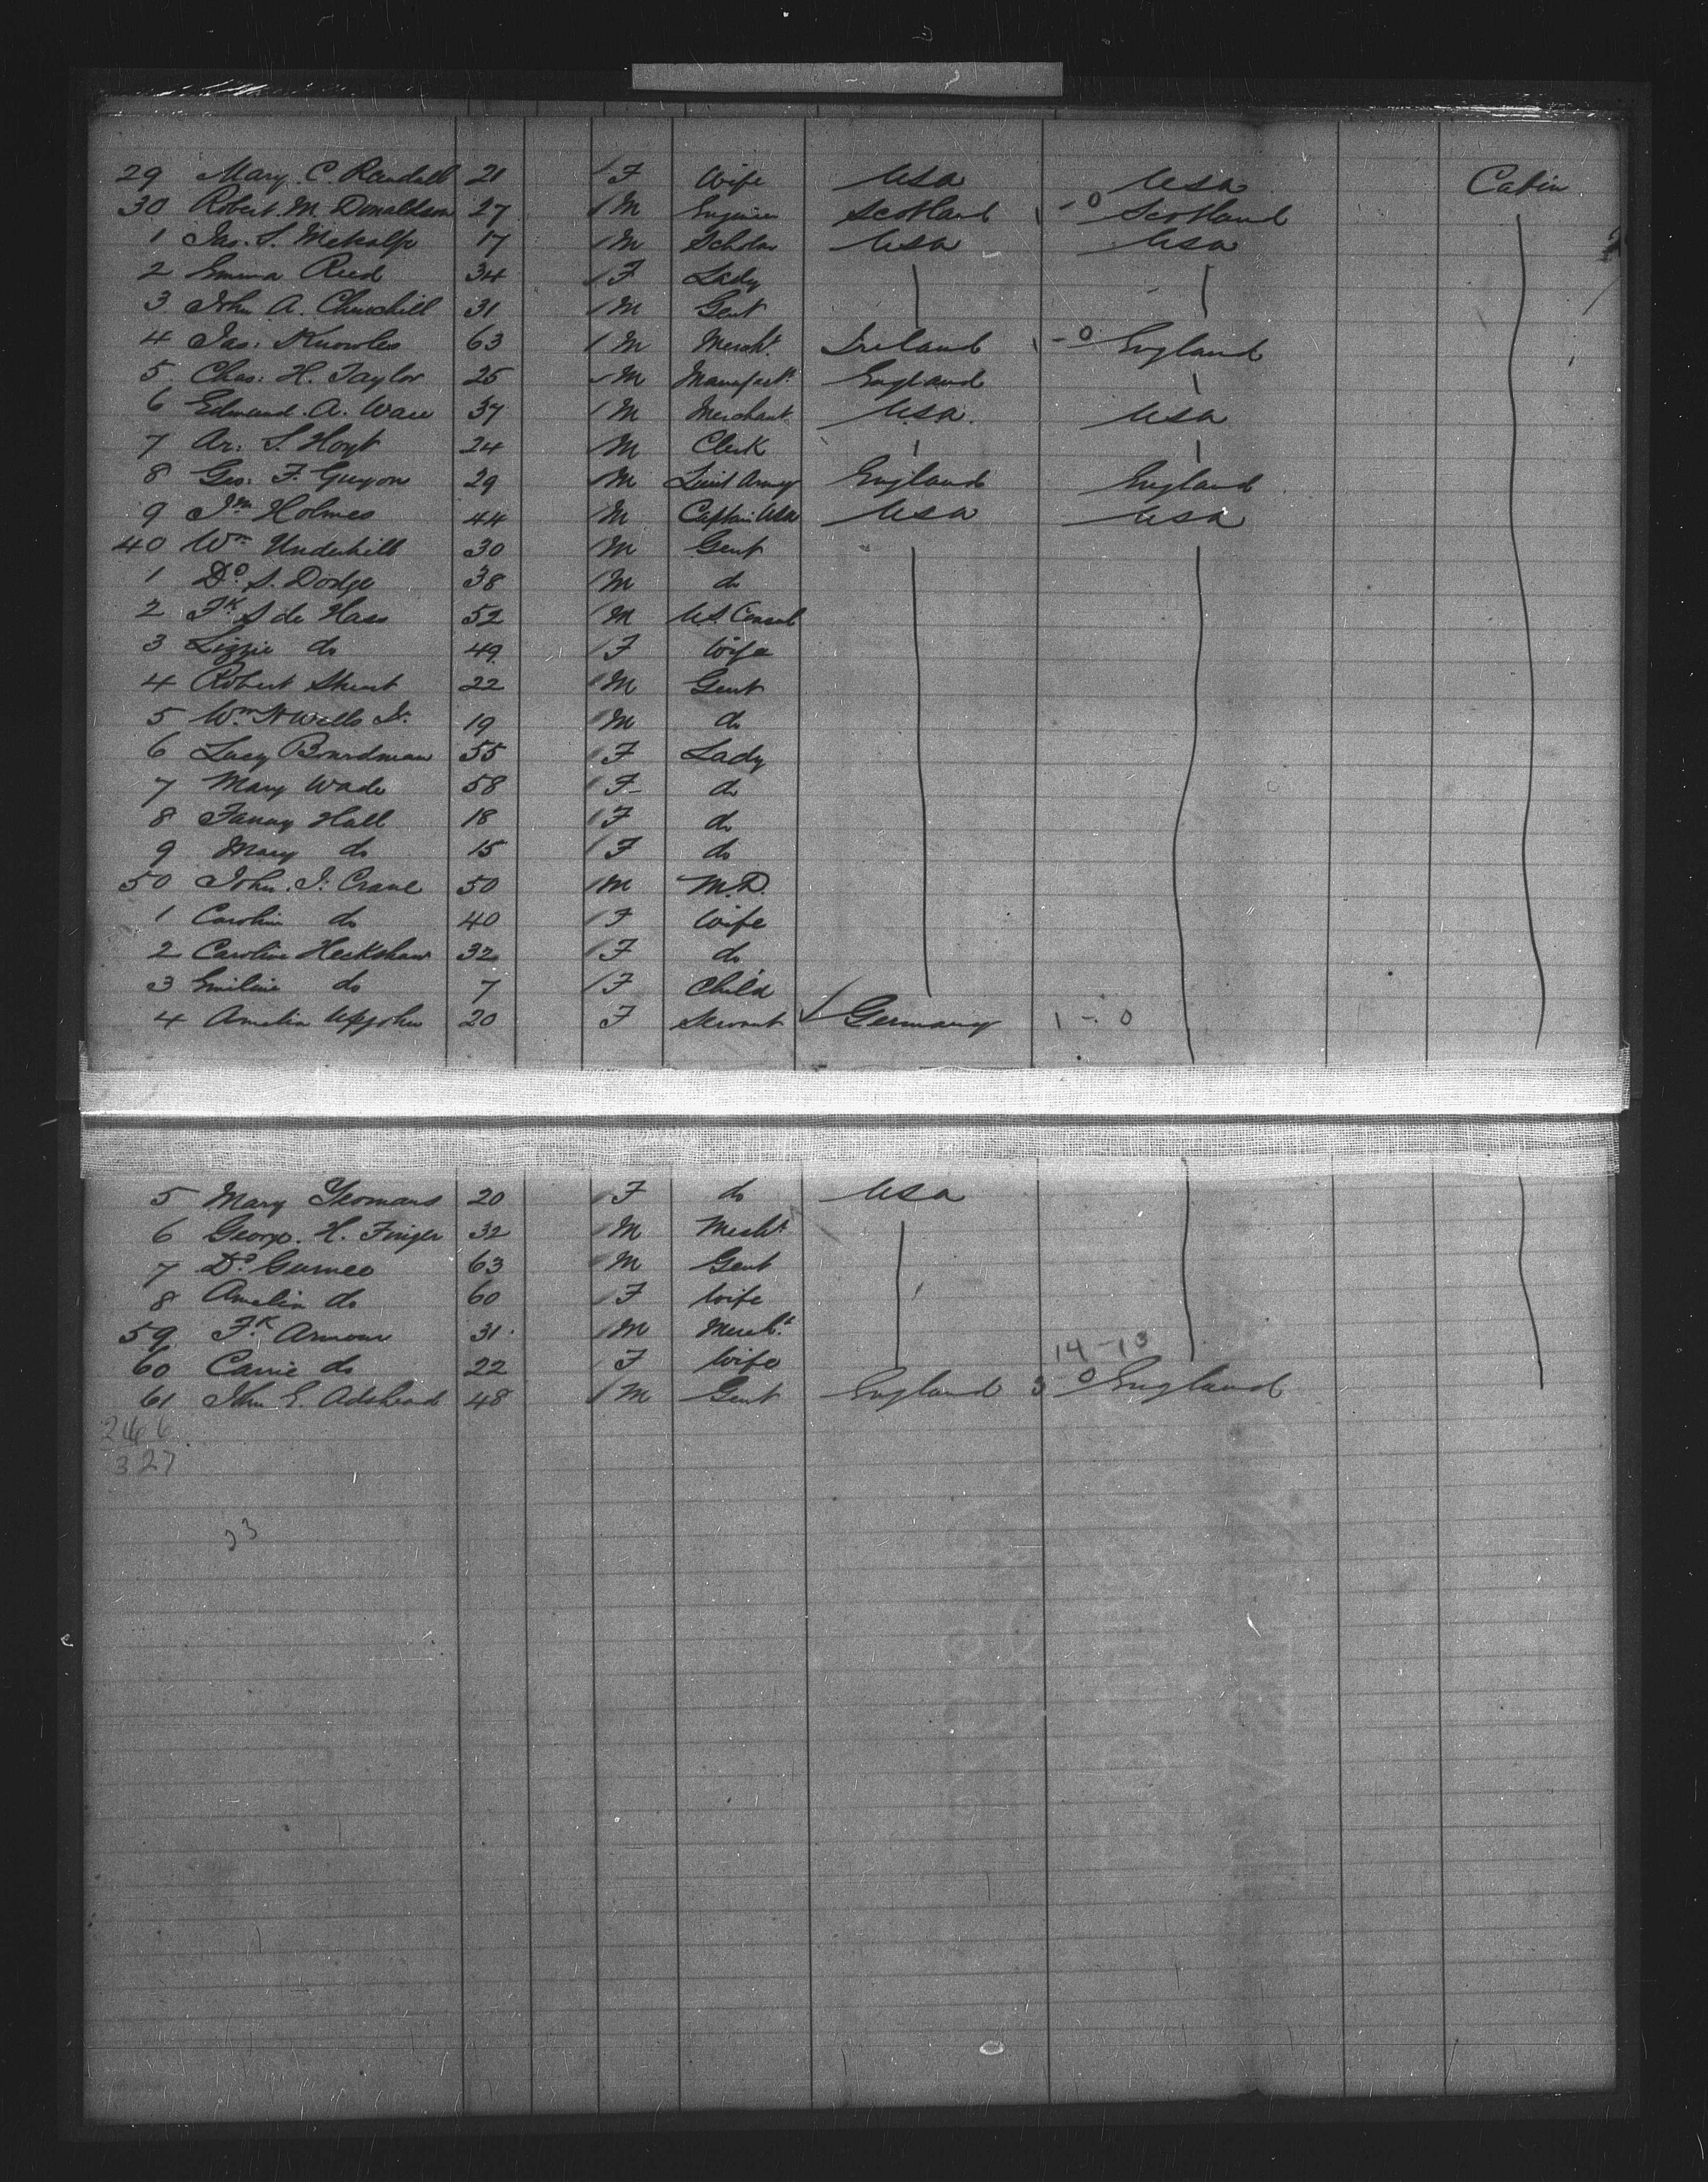 29 Mary. C. Randall 21 F Wife USA USA Cabin
30 Robert. M. Donaldson 27 M Engineer Scotland - 0 Scotland
1 Jas. S. Metcalfe 17 M Scholar USA USA
2 Emma Reed 34 F Lady
3 John A. Churchill 31 M Gent
4 Jas: Knowles 63 M Mercht. Ireland - 0 England
5 Chas: H. Taylor 25 M Manufactr. England
6 Edmund. A. Ware 37 M Merchant USA. USA
7 Ar: S. Hoyt 24 M Clerk
8 Geo: F. Guyon 29 M Lieut Army England England
9 Holmes 44 M Captain USA USA USA
40 Wm Underhill 30 M Gent
1 Do. S. Dodge 38 M do
2 Fk S de Hass 52 M U.S. Consul
3 Lizzie do 49 F Wife
4 Robert 22 M Gent
5 Wm Wells Jr. 19 M do
6 Lucy Boardman 55 F Lady
7 Mary Wade 58 F do
8 Fanny Hall 18 F do
9 Mary do 15 F do
50 John. J. Crane 50 M M.D.
1 Carolin do 40 F Wife
2 Caroline Heckshaw 32 F do
3 Emiline do 7 F Child
4 Amelia Upjohn 20 F Servant Germany 1 - 0
5 Mary Yeomans 20 F do USA
6 George. H. Finger 32 M Mercht.
7 Do. Gurnee 63 M Gent
8 Amelia do 60 F Wife
59 Fk. Armour 31 M Mercht.
60 Carrie do 22 F Wife 14 - 13
61 John E. Adshead 48 M Gent England 3 0 England
266
327
23